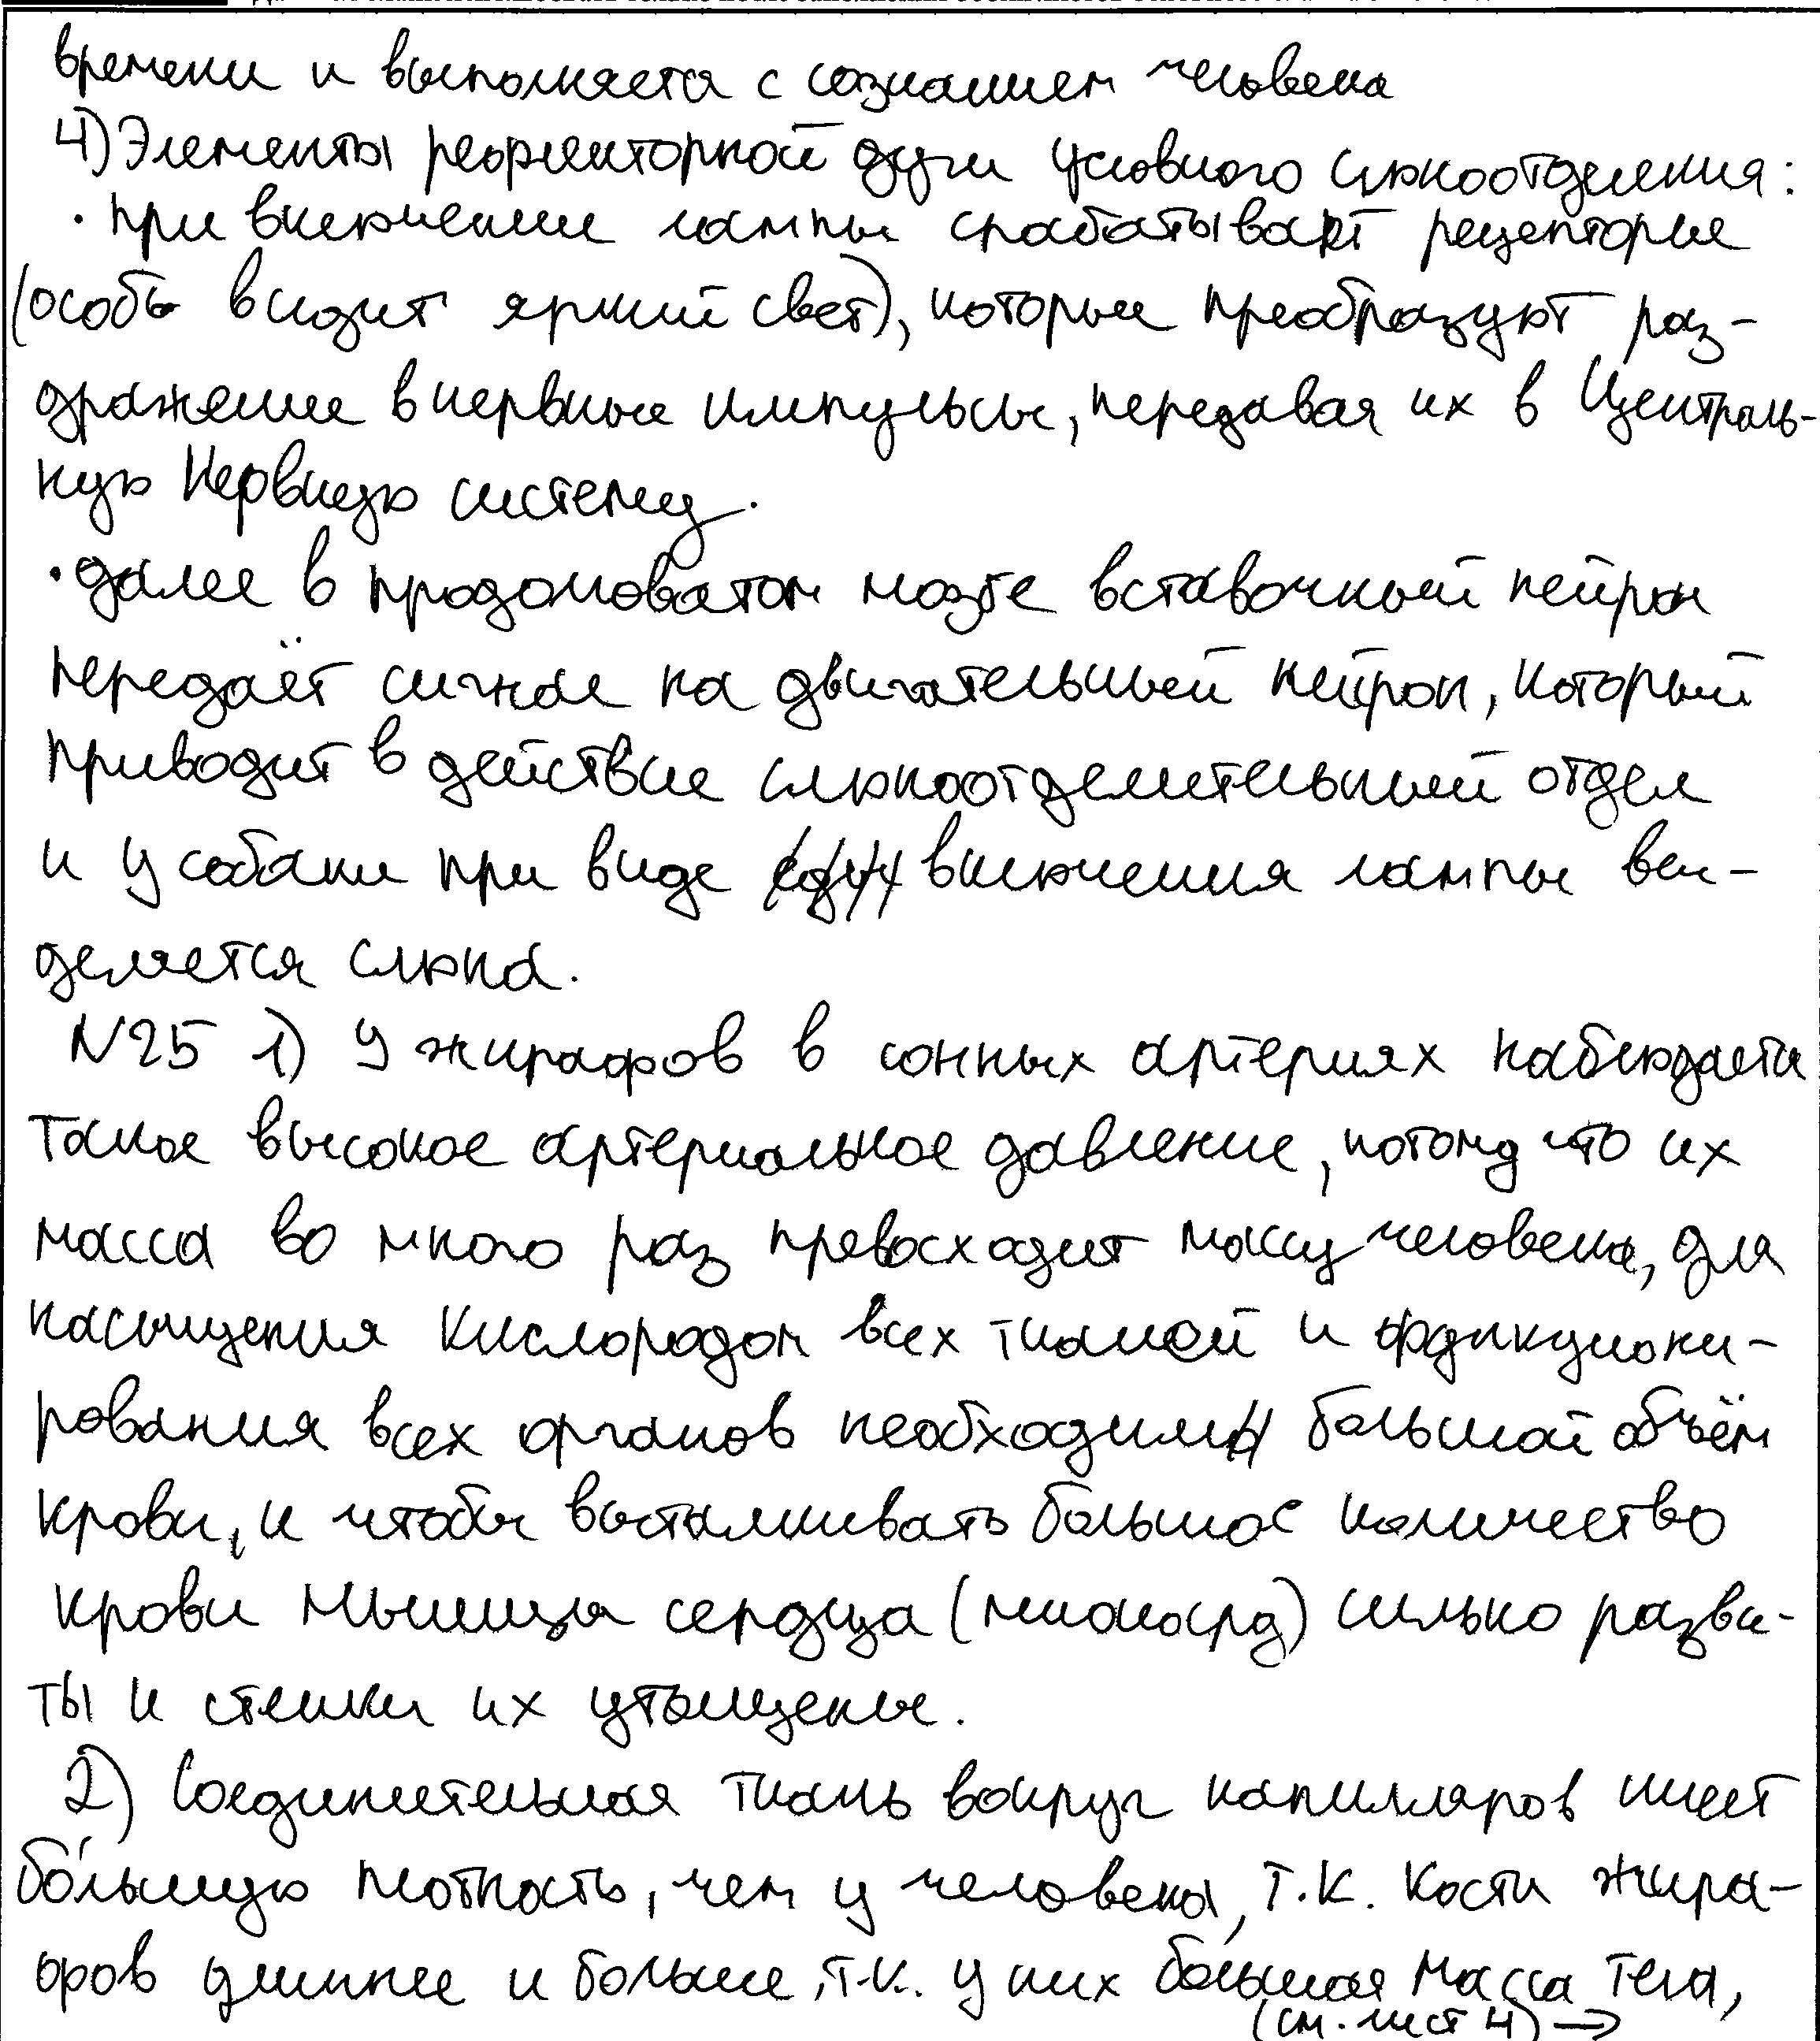 времени и выполняется с сознанием человека
4) Элементы рефлекторной дуги условного слюноотделения:
• при включении лампы срабатывают рецепторы
(особь видит яркий свет), которые преобразуют раз-
дражение в нервные импульсы, передавая их в Централь-
ную Нервную систему.
• далее в продолговатом мозге вставочный нейрон
передаёт сигнал на двигательный нейрон, который
приводит в действие слюноотделительный отдел
и у собаки при виде включения лампы вы-
деляется слюна.
N25 1) У жирафов в сонных артериях наблюдается
такое высокое артериальное давление, потому что их
масса во много раз превосходит массу человека, для
насыщения кислородом всех тканей и функциони-
рования всех органов необходим большой объём
крови, и чтобы выталкивать большое количество
крови мышцы сердца (миокард) сильно разви-
ты и стенки их утолщены.
2) Соединительная ткань вокруг капилляров имеет
бо́льшую плотность, чем у человека, т.к. кости жира-
фов длиннее и больше, т.к. у них бо́льшая масса тела,
(см. лист 4) →